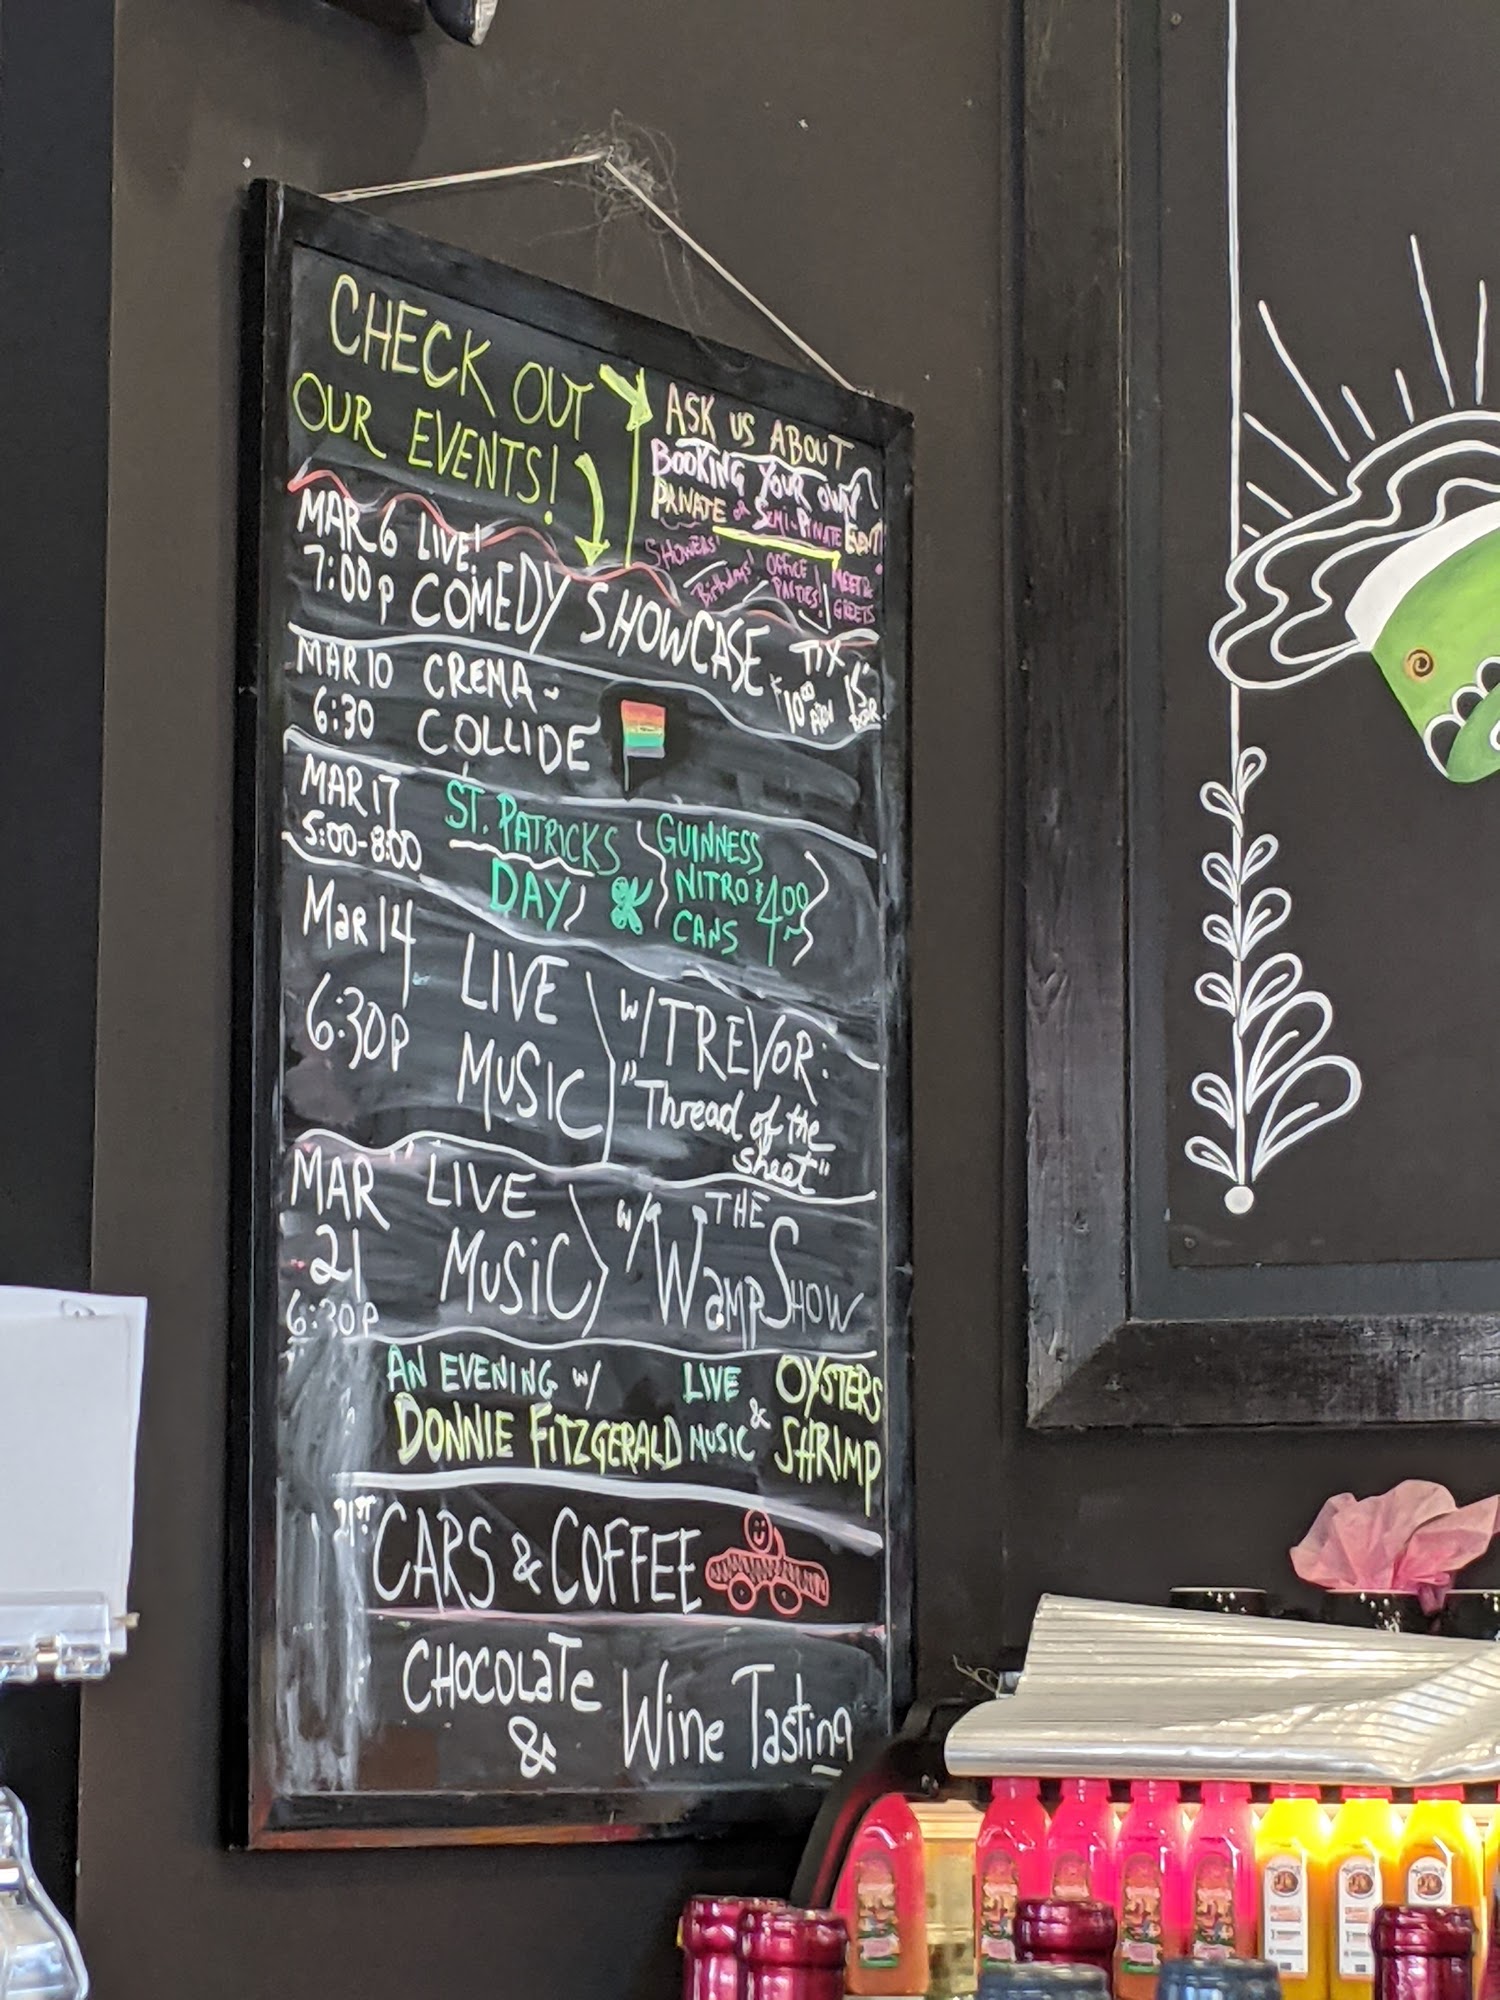 CHECK OUT
OUR EVENTS!
ASK US ABOUT
BOOKING YOUR OWN
PRIVATE or SEMI-PRIVATE EVENT!
SHOWERS!
Birthdays!
OFFICE
PARTIES!
MEET &
GREETS
MAR 6 LIVE!
7:00p COMEDY SHOWCASE
TIX
$10.00 ADV
15
DOOR
MAR 10 CREMA-
6:30 COLLIDE
MAR 17
5:00-8:00
ST. PATRICKS
DAY
GUINNESS
NITRO $4.00
CANS
Mar 14
6:30P
LIVE
MUSIC
w/ TREVOR:
"Thread of the
sheet"
MAR
21
6:30P
LIVE
MUSIC
w/ THE
WAMP SHOW
AN EVENING w/
DONNIE FITZGERALD
LIVE
MUSIC
&
OYSTERS
SHRIMP
21ST CARS & COFFEE
CHOCOLATE
& Wine Tasting